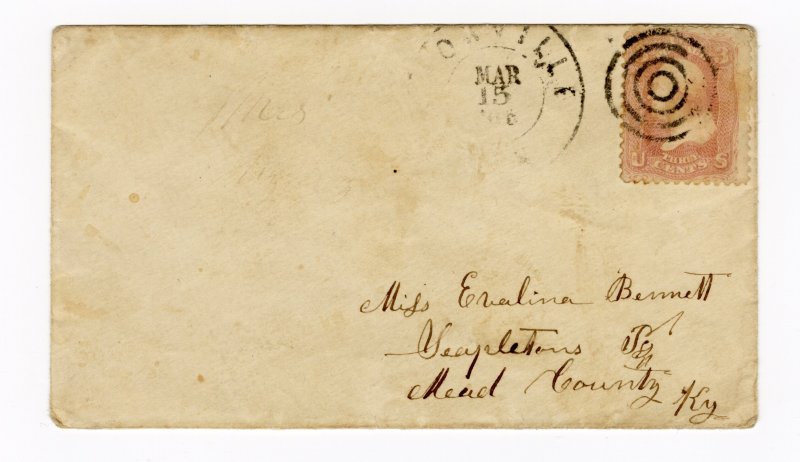 ONVILLE
MAR
15
'66
U THREE CENTS S
Miss Evalina Bennett
Seapletons
Mead County
Ky